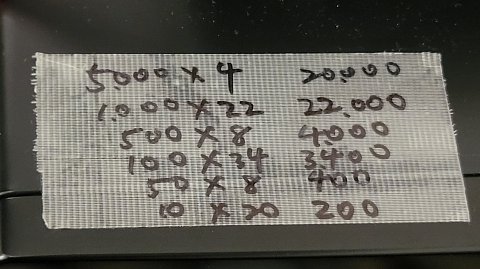 5.000 × 4 20.000
1.000 × 22 22.000
500 × 8 4.000
100 × 34 3400
50 × 8 400
10 × 20 200